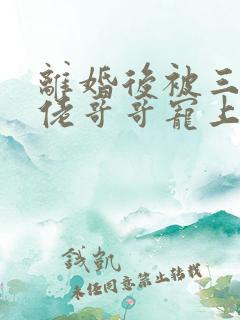 離婚後被三
佬哥哥寵上
錢凱
未經同意禁止轉載